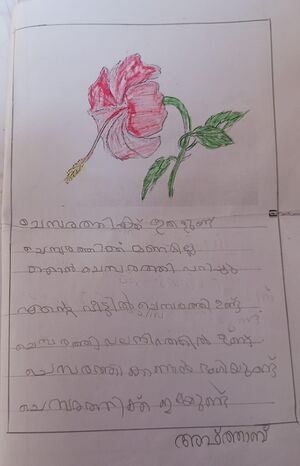 ചെമ്പരത്തിക്ക് ഇതളുണ്ട്
ചെമ്പരത്തിക്ക് മണമില്ല
ഞാൻ ചെമ്പരത്തി പറിച്ചു
എന്റെ വീട്ടിൽ ചെമ്പരത്തി ഉണ്ട്
ചെമ്പരത്തി പല നിറത്തിൽ ഉണ്ട്
ചെമ്പരത്തി കാണാൻ ഭംഗിയുണ്ട്
ചെമ്പരത്തിക്ക് ഇലയുണ്ട്